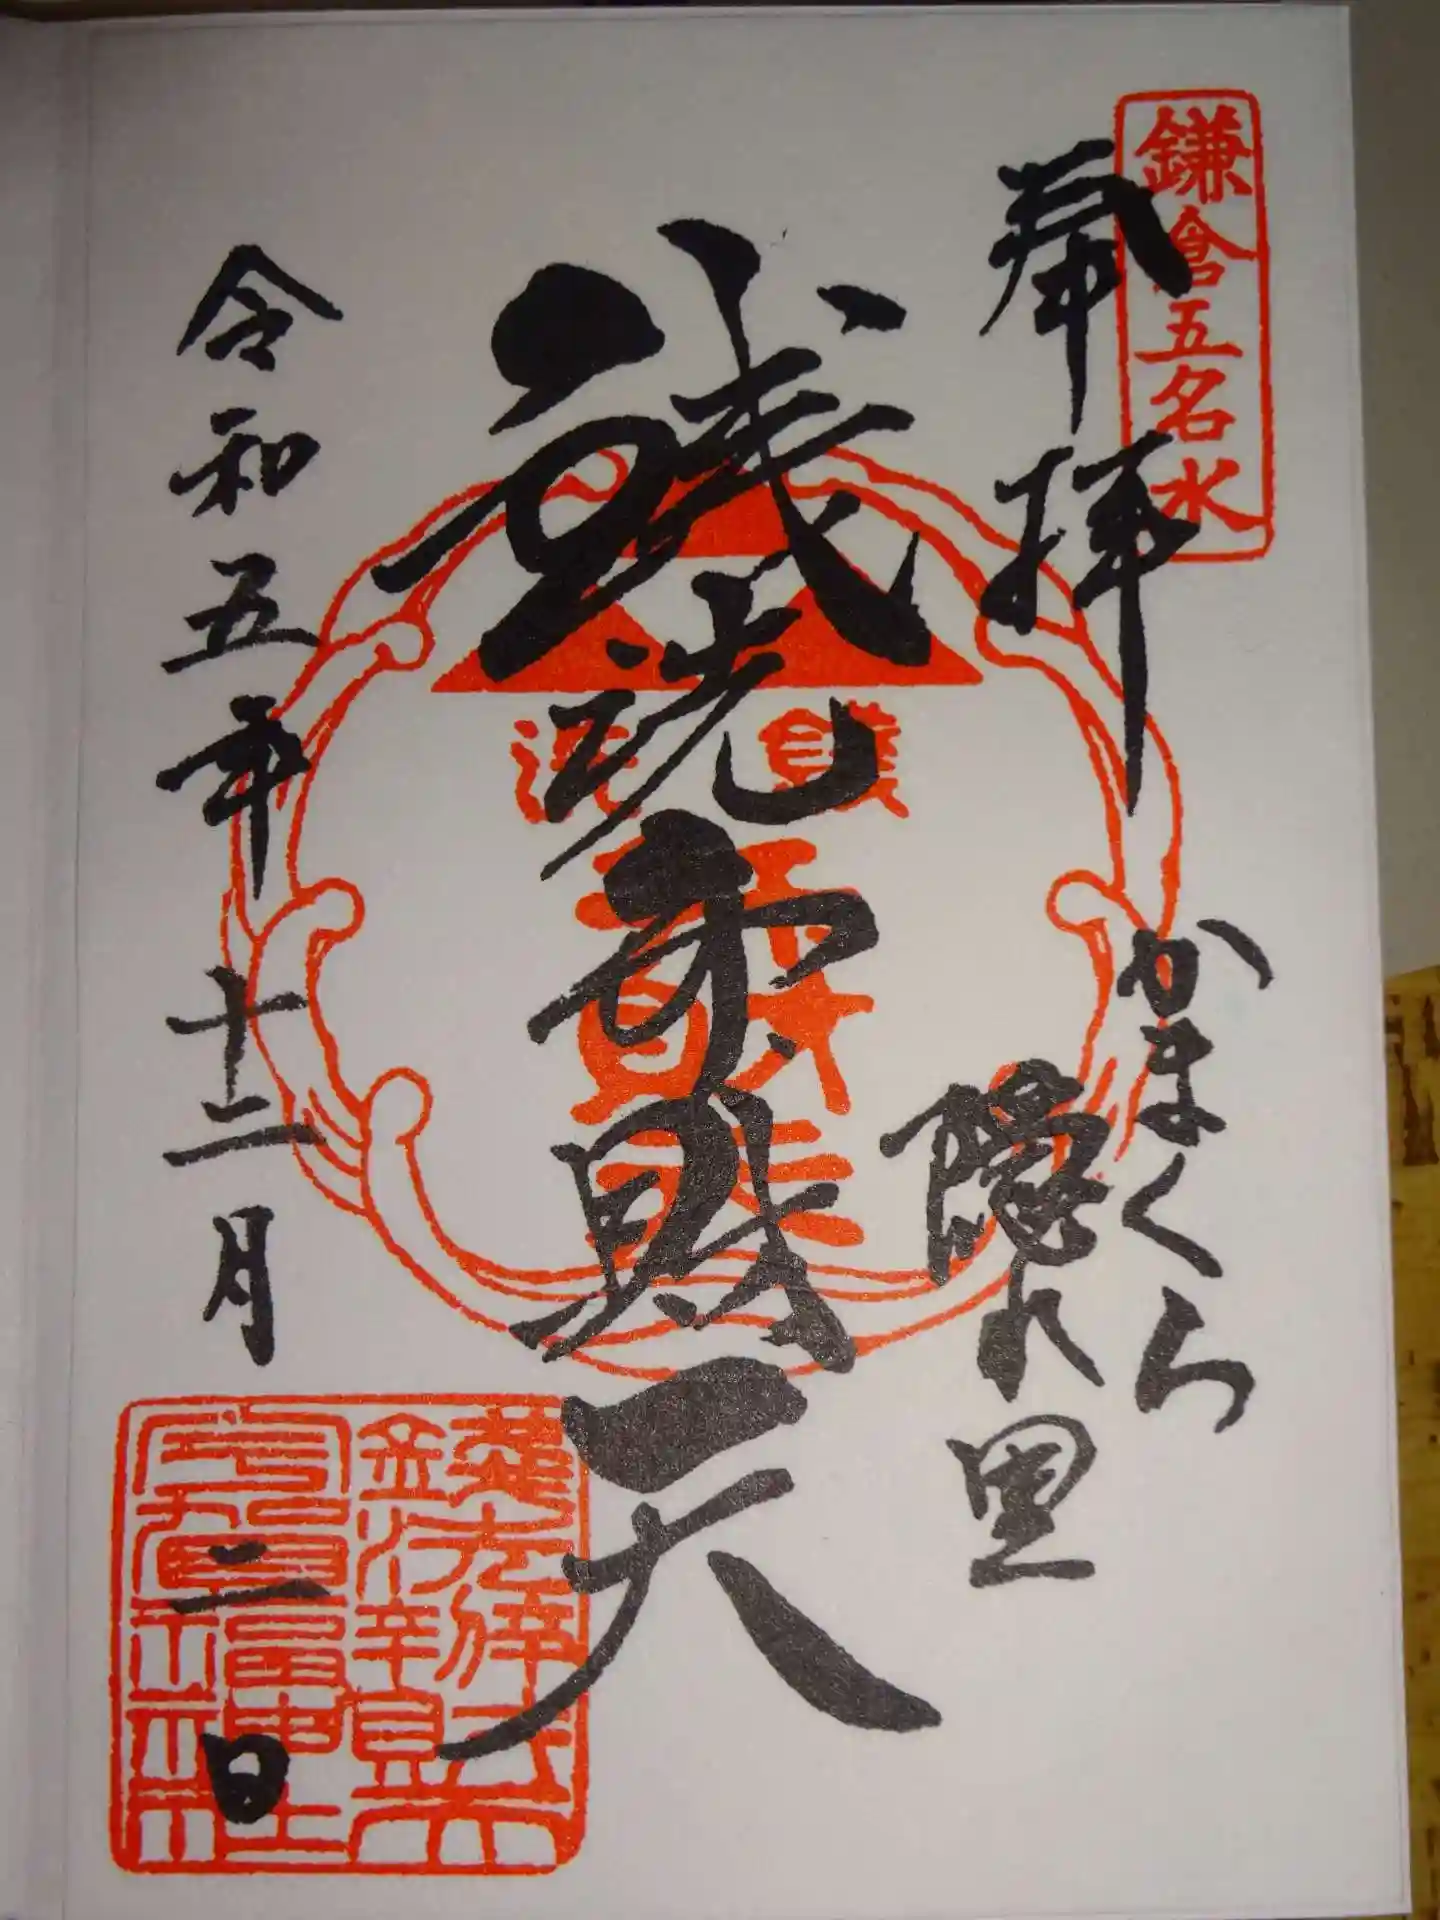 鎌倉五名水
奉拝
かまくら
隠れ里
銭洗弁財天
銭洗
令和五年十二月二日
銭洗弁財天
宇賀福神社